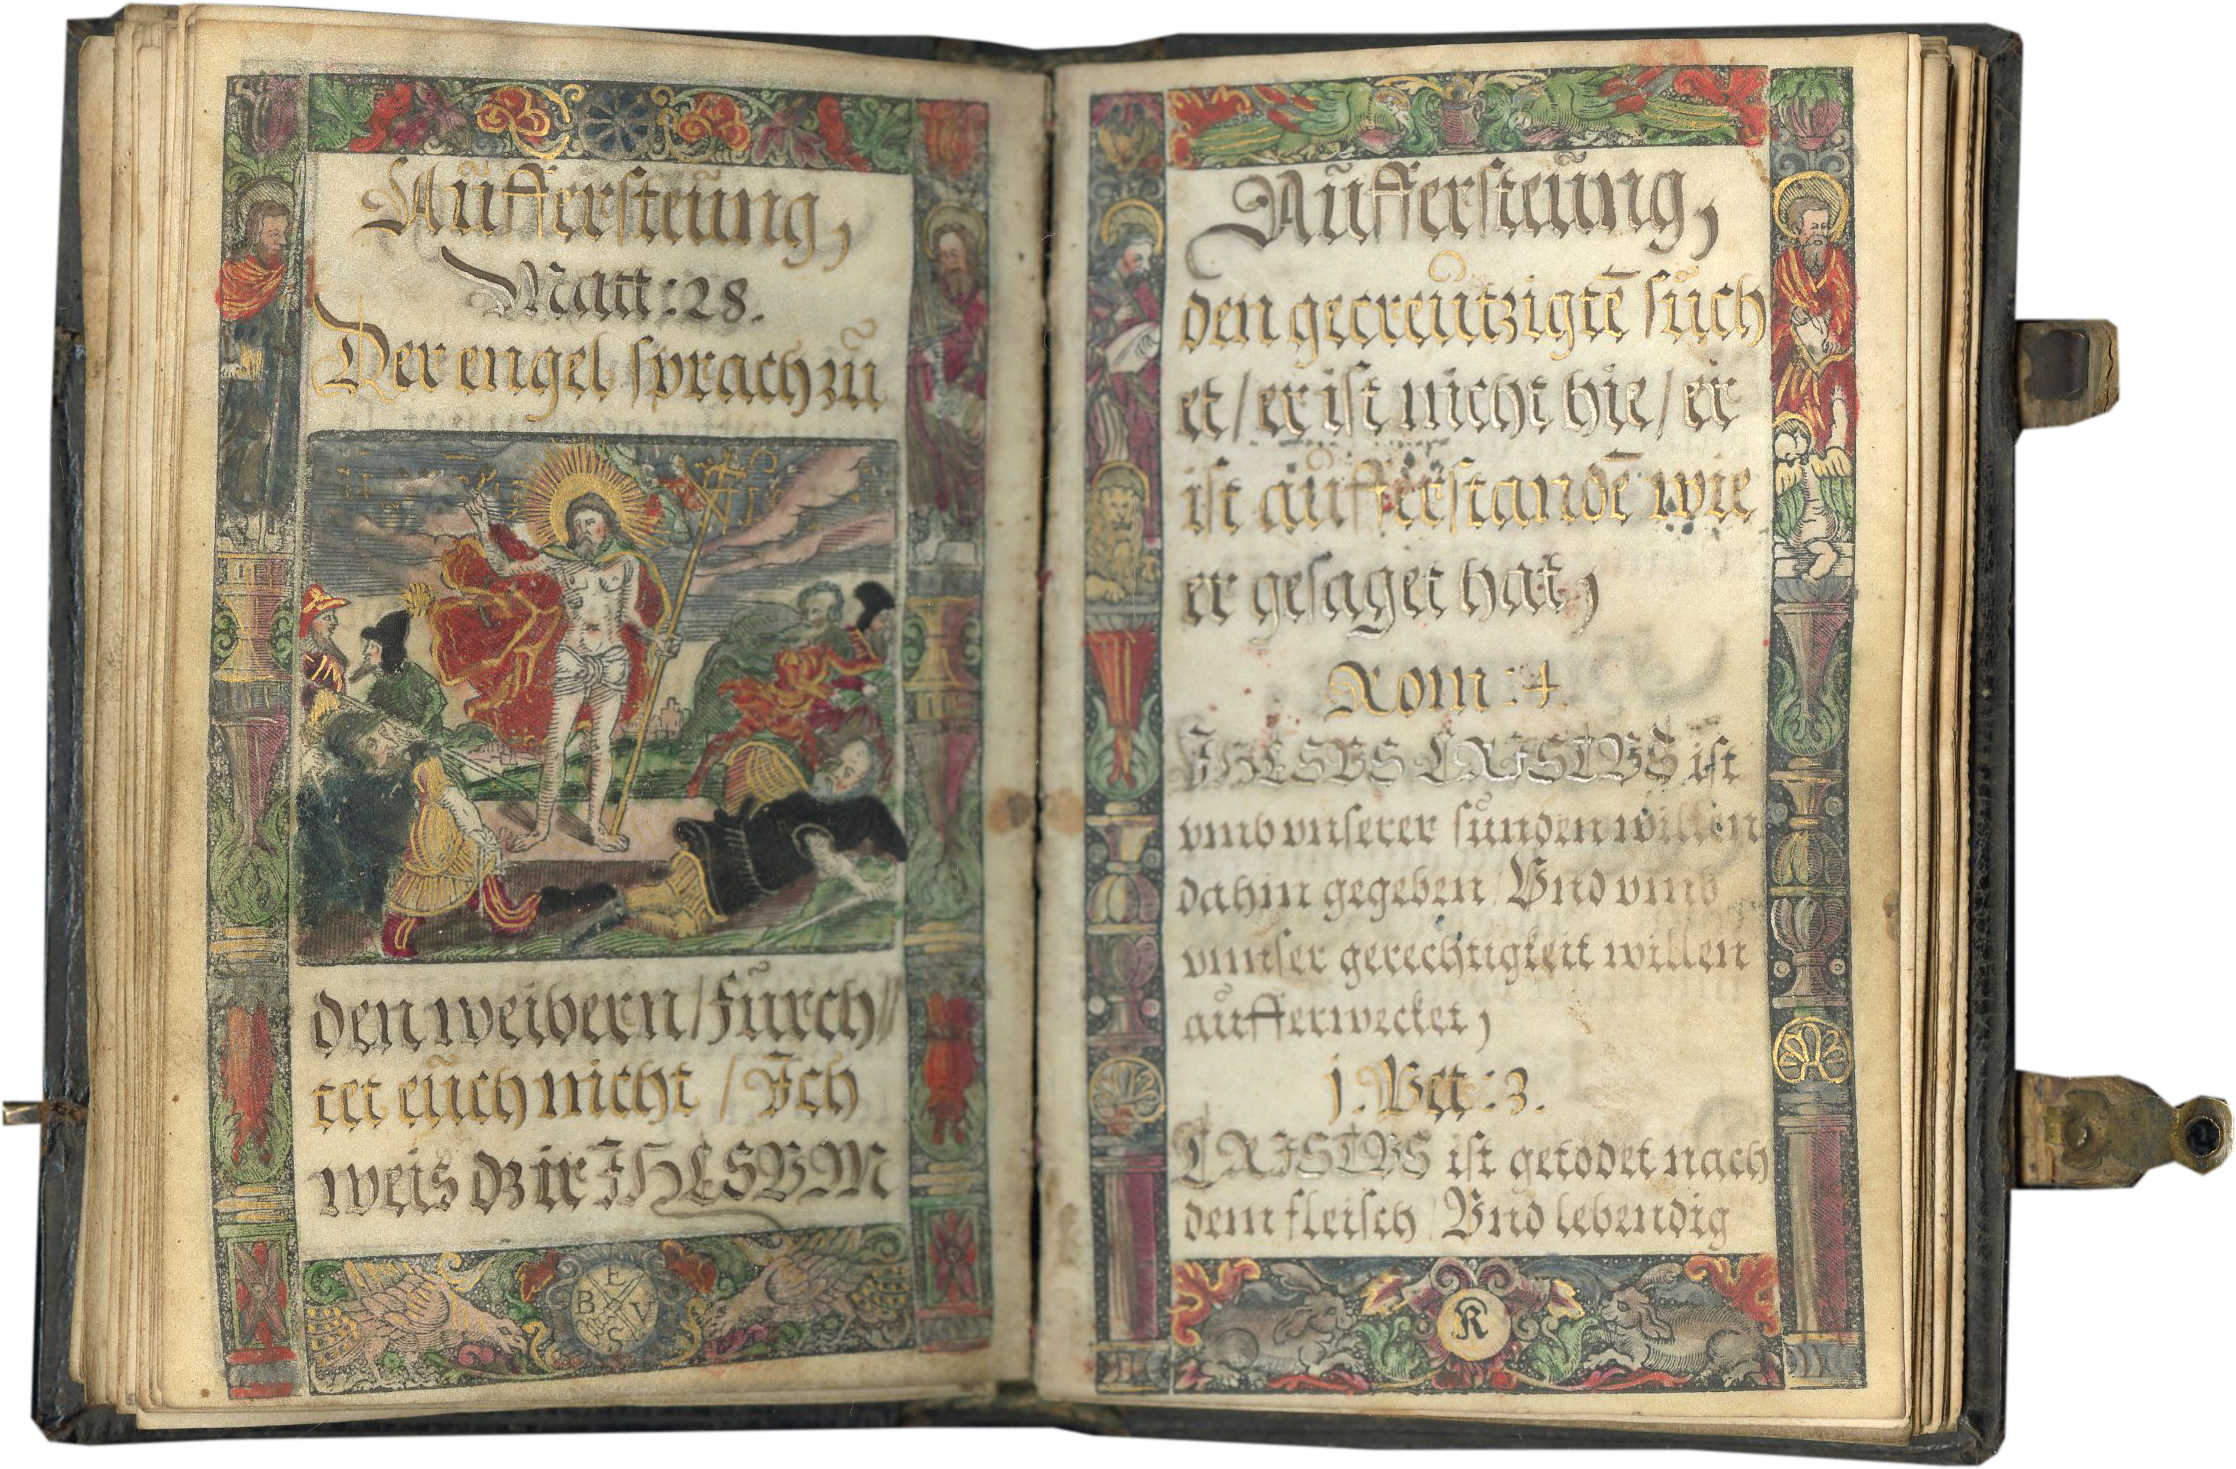 Aufferſteũng,
Matt:28.
Der engel ſprach zũ
den weibern/fũrch//
tet eũch nicht / Ich
weis dz ir IHESVM
E
B V
S
Aũfferſteũng,
den gecreũtzigtē ſũch
et/er iſt nicht hie/er
iſt aůfferſtandē wie
er geſaget hat,
Rom:4.
IHESVS CRISTVS iſt
vmb vnſerer ſůnden willen
dahin gegeben/Vnd vmb
vnnſer gerechtigkeit willen
aůfferwecket,
j.Pet:3.
CRISTVS iſt getodet nach
dem fleiſch/Vnd lebendig
K